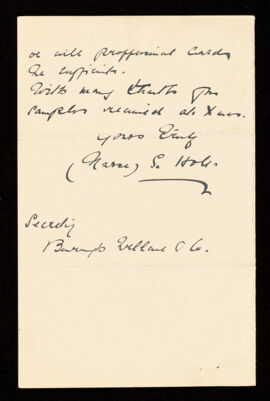 or will proffessional cards
be sufficient.
With many thanks for
samples received at Xmas.
Yours truly
(Nurse) E. Hol
Secretary
Burroughs Wellcome & Co.